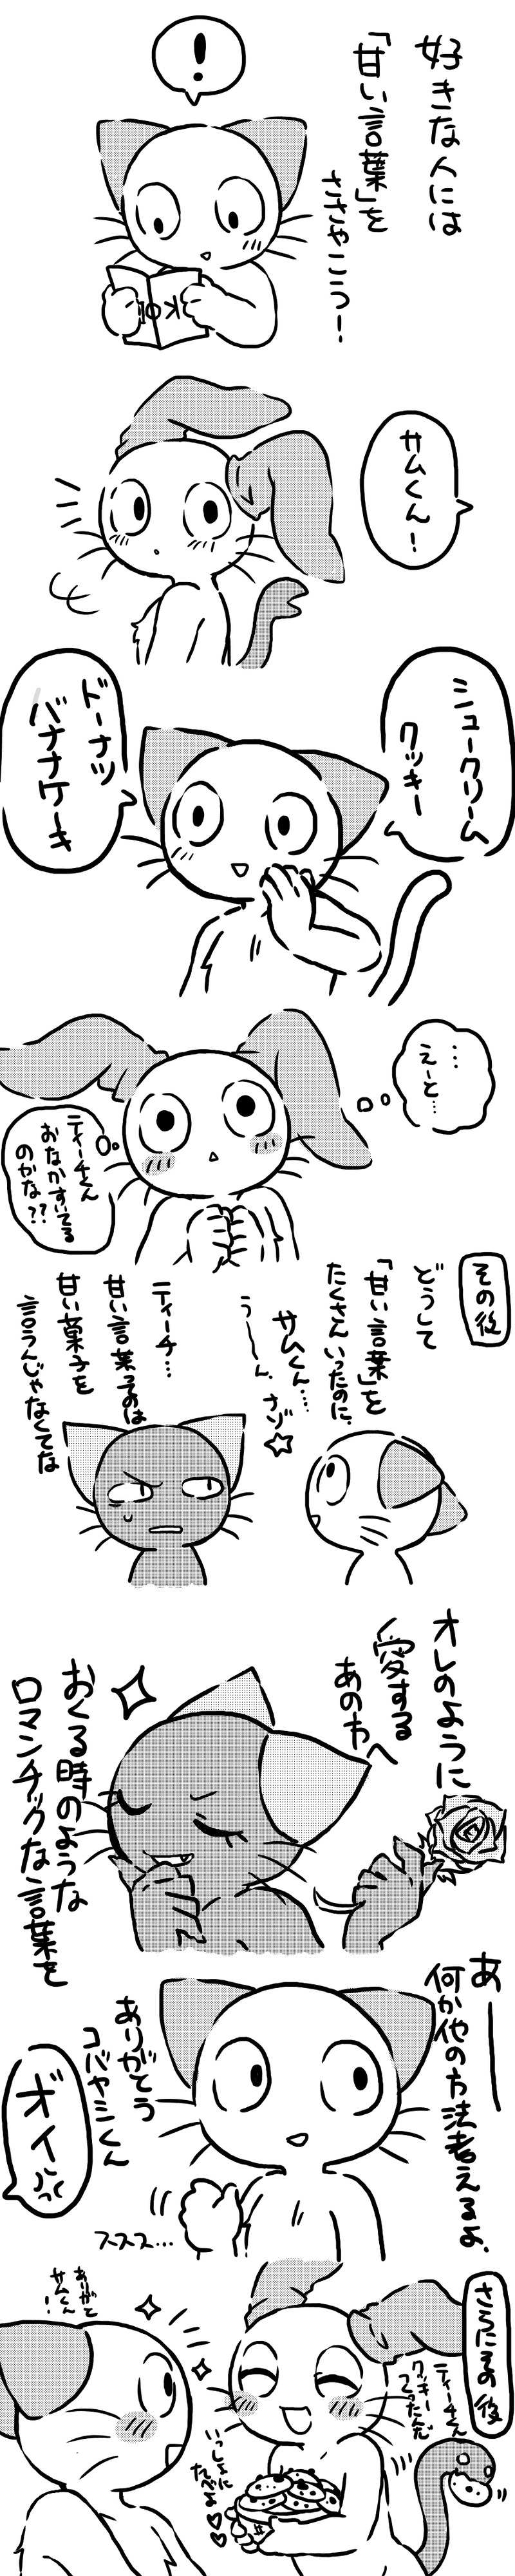 好きな人には
「甘い言葉」を
ささやこう！
！
KOI
サムくん！
シュークリーム
クッキー
ドーナツ
バナナケーキ
…えーと…
ティーチくん
おなかすいてる
のかな??
その後
どうして
「甘い言葉」を
たくさんいったのに、
サムくん…
うーーん、
ティーチ…
甘い言葉ってのは
甘い菓子を
言うんじゃなくてな
オレのように
愛する
あの方へ
おくる時のような
ロマンチックな言葉を
あーー
何か他の方法考えるよ、
ありがとう
コバヤシくん
オイ
ススス…
さらにその後
ティーチくん
クッキー
つくったんだ
いっしょに
たべよ♡♡
ありがと
サムくん！